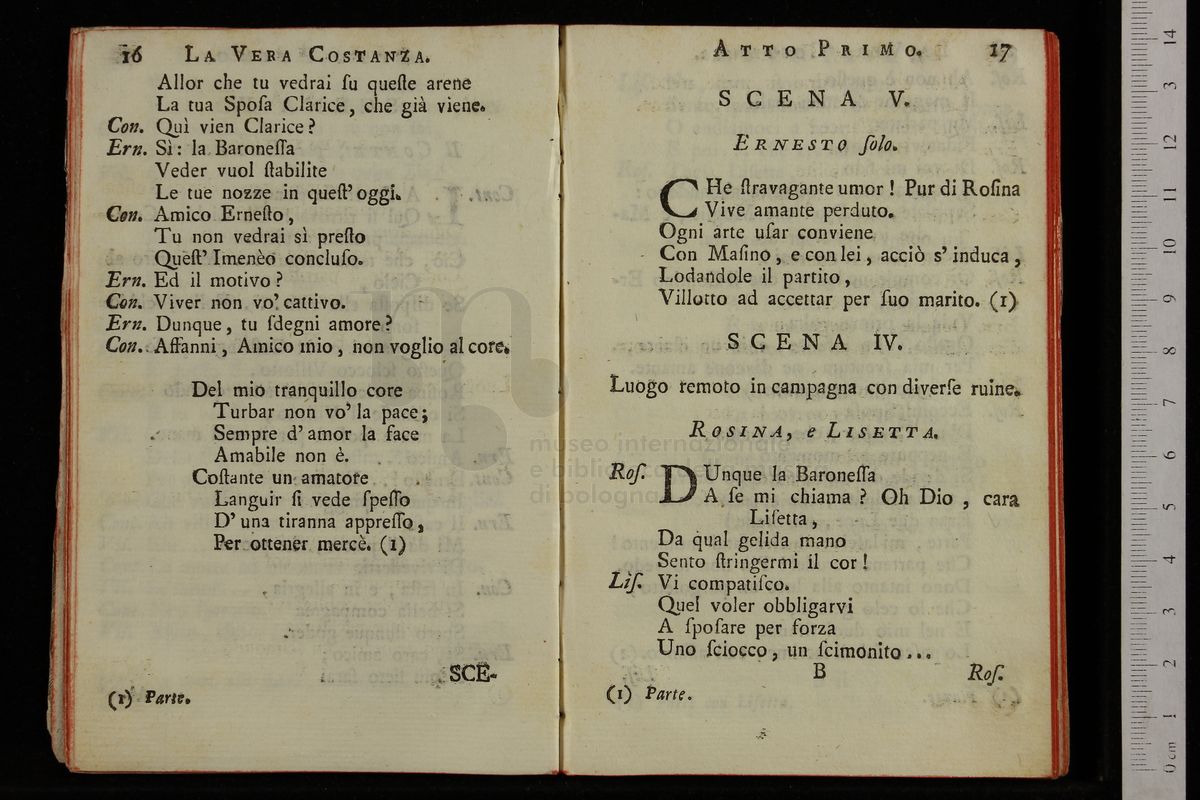 16 LA VERA COSTANZA.
Allor che tu vedrai ſu queſte arene
La tua Spoſa Clarice, che già viene.
Con. Quì vien Clarice?
Ern. Sì: la Baroneſſa
Veder vuol ſtabilite
Le tue nozze in queſt' oggi.
Con. Amico Erneſto,
Tu non vedrai sì preſto
Queſt' Imenèo concluſo.
Ern. Ed il motivo?
Con. Viver non vo' cattivo.
Ern. Dunque, tu ſdegni amore?
Con. Affanni, Amico mio, non voglio al core.
Del mio tranquillo core
Turbar non vo' la pace;
Sempre d' amor la face
Amabile non è.
Coſtante un amatore
Languir ſi vede ſpeſſo
D' una tiranna appreſſo,
Per ottener mercè. (1)
SCE-
(1) Parte.
ATTO PRIMO. 17
SCENA V.
ERNESTO ſolo.
CHe ſtravagante umor! Pur di Roſina
Vive amante perduto.
Ogni arte uſar conviene
Con Maſino, e con lei, acciò s' induca,
Lodandole il partito,
Villotto ad accettar per ſuo marito. (1)
SCENA IV.
Luogo remoto in campagna con diverſe ruine.
ROSINA, e LISETTA.
Roſ. DUnque la Baroneſſa
A ſe mi chiama? Oh Dio, cara
Liſetta,
Da qual gelida mano
Sento ſtringermi il cor!
Liſ. Vi compatiſco.
Quel voler obbligarvi
A ſpoſare per forza
Uno ſciocco, un ſcimonito...
B Roſ.
(1) Parte.
museo internazionale
e biblio
di bologna
0 cm 1 2 3 4 5 6 7 8 9 10 11 12 13 14